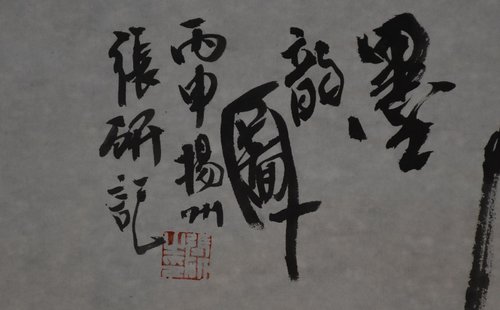 墨韵
丙申揚州
張研記